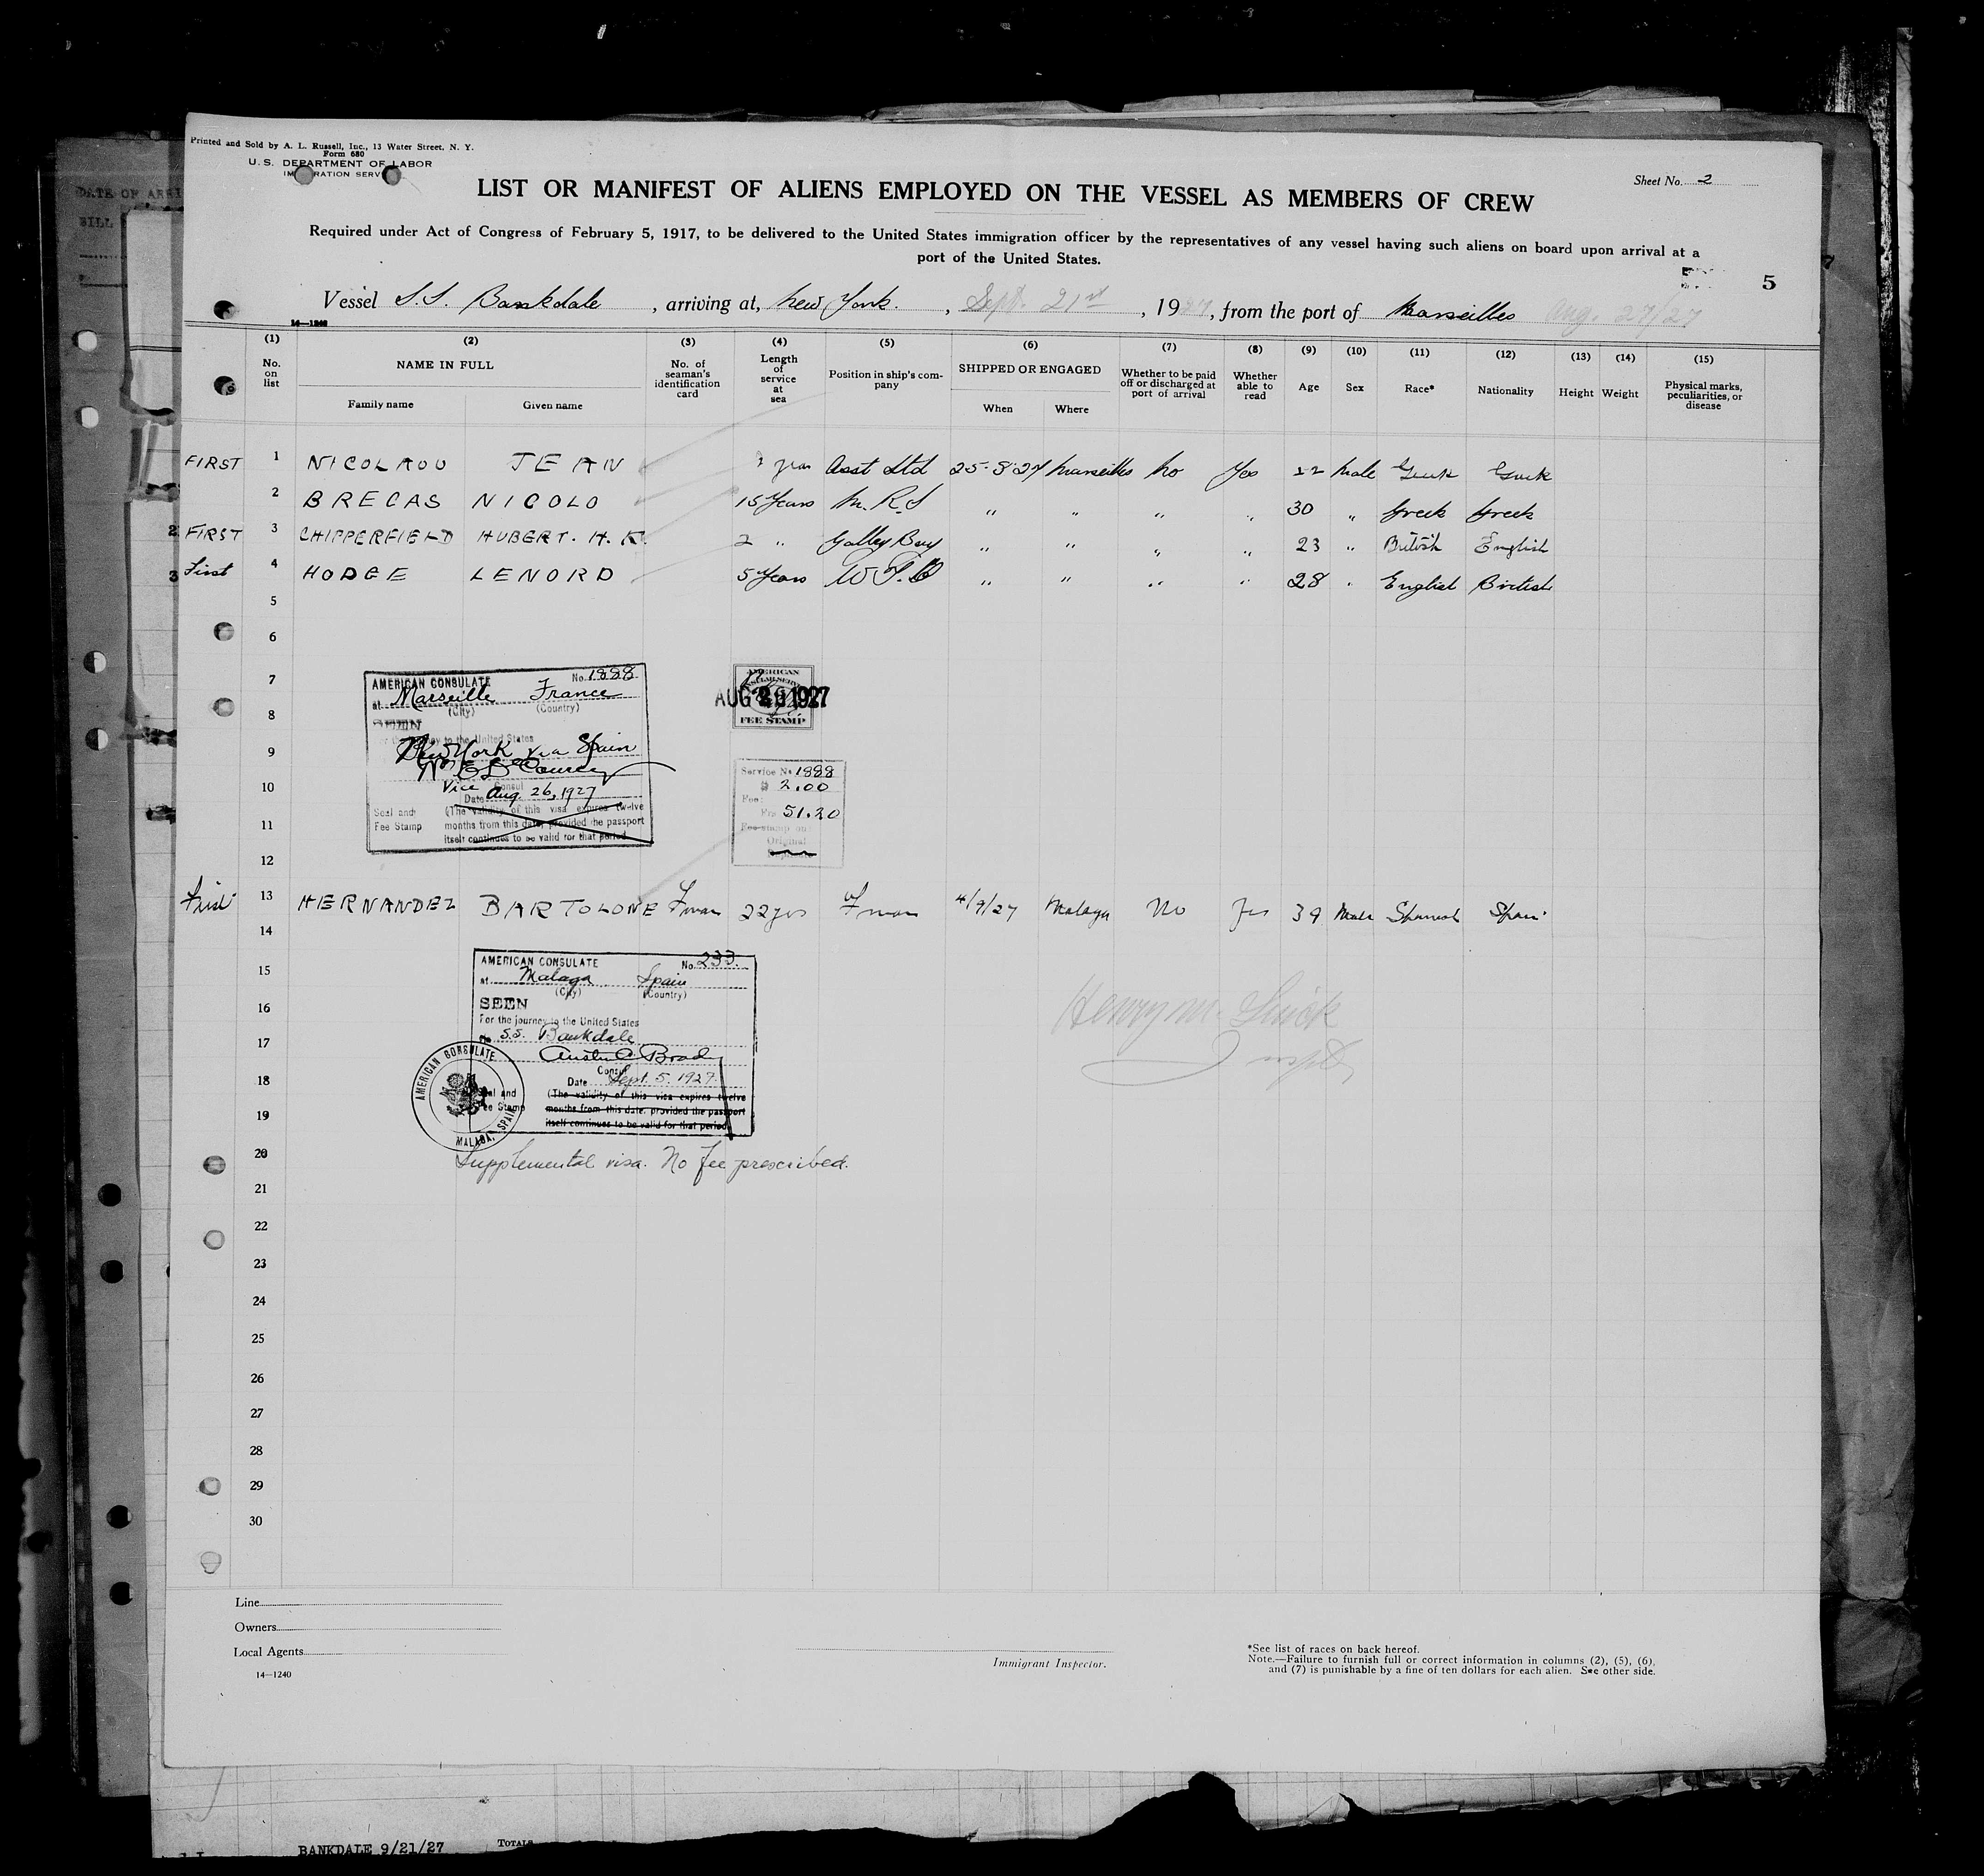 Printed and Sold by A. L. Russell, Inc., 13 Water Street, N. Y.
Form 680
U. S. DEPARTMENT OF LABOR
IMMIGRATION SERVICE
Sheet No. 2
LIST OR MANIFEST OF ALIENS EMPLOYED ON THE VESSEL AS MEMBERS OF CREW
Required under Act of Congress of February 5, 1917, to be delivered to the United States immigration officer by the representatives of any vessel having such aliens on board upon arrival at a
port of the United States.
5
Vessel S.S. Bankdale, arriving at, New York., Sept. 21st, 1927, from the port of Marseilles Aug. 27/27
14—1240
(1) (2) (3) (4) (5) (6) (7) (8) (9) (10) (11) (12) (13) (14) (15)
No. on list NAME IN FULL Family name Given name No. of seaman's identification card Length of service at sea Position in ship's company SHIPPED OR ENGAGED When Where Whether to be paid off or discharged at port of arrival Whether able to read Age Sex Race* Nationality Height Weight Physical marks, peculiarities, or disease
FIRST 1 NICOLAOU JEAN year Asst Std 25-8-27 Marseilles No Yes 22 Male Greek Greek
2 BRECAS NICOLO 15 Years M.R.S " " " " 30 " Greek Greek
2 FIRST 3 CHIPPERFIELD HUBERT. H. K. 2 " Galley Boy " " " " 23 " British English
3 First 4 HODGE LENORD 5 Years " " " " 28 " English British
5
6
7
8
9
10
11
12
AMERICAN CONSULATE No. 1888
at Marseille France
(City) (Country)
SEEN
For the journey to the United States
New York via Spain
Vice Consul
Date Aug. 26, 1927
Seal and Fee Stamp
(The validity of this visa expires twelve
months from this date, provided the passport
itself continues to be valid for that period
AMERICAN
CONSULAR SERVICE
AUG 26 1927
FEE STAMP
Service No 1888
$ 2.00
Fee:
Frs 51.20
Fee stamp on:
Original
First 13 HERNANDEZ BARTOLONE Fman 22 yrs Fman 4/9/27 Malaga No Yes 39 Male Spanish Spain
14
15
16
17
18
19
AMERICAN CONSULATE No. 233.
at Malaga Spain
(City) (Country)
SEEN
For the journey to the United States
S.S. Bankdale
Austin C. Brady
Consul
Date Sept. 5. 1927
Seal and Fee Stamp
(The validity of this visa expires twelve
months from this date, provided the passport
itself continues to be valid for that period
AMERICAN CONSULATE
MALAGA, SPAIN
Henry M.
Inspt
20
Supplemental visa. No fee prescribed.
21
22
23
24
25
26
27
28
29
30
Line
Owners
Local Agents
14—1240
Immigrant Inspector.
*See list of races on back hereof.
Note.—Failure to furnish full or correct information in columns (2), (5), (6),
and (7) is punishable by a fine of ten dollars for each alien. See other side.
BANKDALE 9/21/27 TOTALS
DATE OF ARRI
BILL